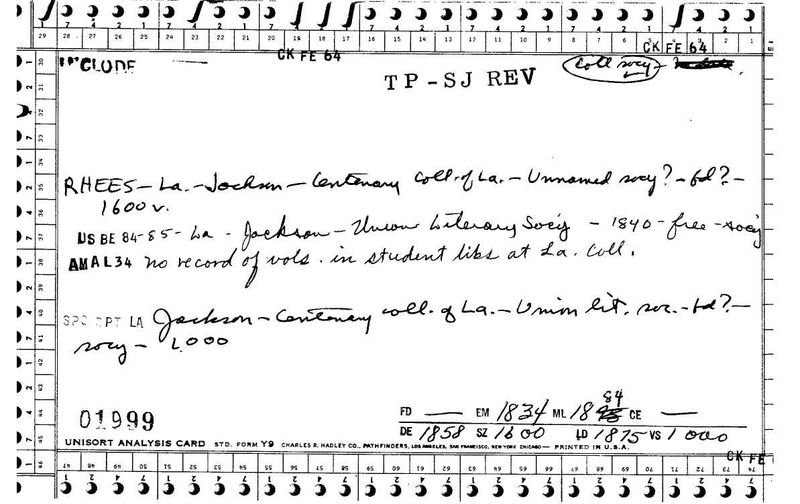 29 28 27 26 25 24 23 22 21 20 19 18 17 16 15 14 13 12 11 10 9 8 7 6 5 4 3 2 1
CK FE 64 CK FE 64
CLUDE
TP-SJ REV
Coll socy-
RHEES - La. - Jackson - Centenary Coll. of La. - Unnamed socy? - fd? -
1600 v.
US BE 84-85 - La - Jackson - Union Literary Soc'y - 1840 - free - soc'y
AM A L 34 no record of vols. in student libs at La. Coll.
SPC RPT LA Jackson - Centenary coll. of La. - Union lit. soc. - fd? -
socy - 1,000
84
01999
FD — EM 1834 ML 18 CE —
DE 1858 SZ 1600 LD 1875 VS 1000
UNISORT ANALYSIS CARD STD. FORM Y9 CHARLES R. HADLEY CO., PATHFINDERS, LOS ANGELES, SAN FRANCISCO, NEW YORK CHICAGO — PRINTED IN U.S.A.
CK FE